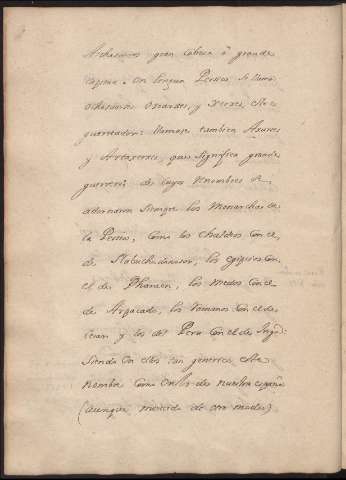 gran cabeza ô grande
En lengua Persica se llama
y Xerxes, este
guerreador: llamase tambien
y Artaxerxes, que significa grande
guerrero de cuyos renombres se
adornaron siempre los Monarchas de
la Persia, como los Chaldeos con el
de Nabuchodonosor, los egipcios con
el de Pharaon, los medos con el
de los romanos con el de
cesar y los del Peru con el de Inga:
Siendo en ellos tan generico este
nombre como en los de nuestra españa
(aunque de otro modo)